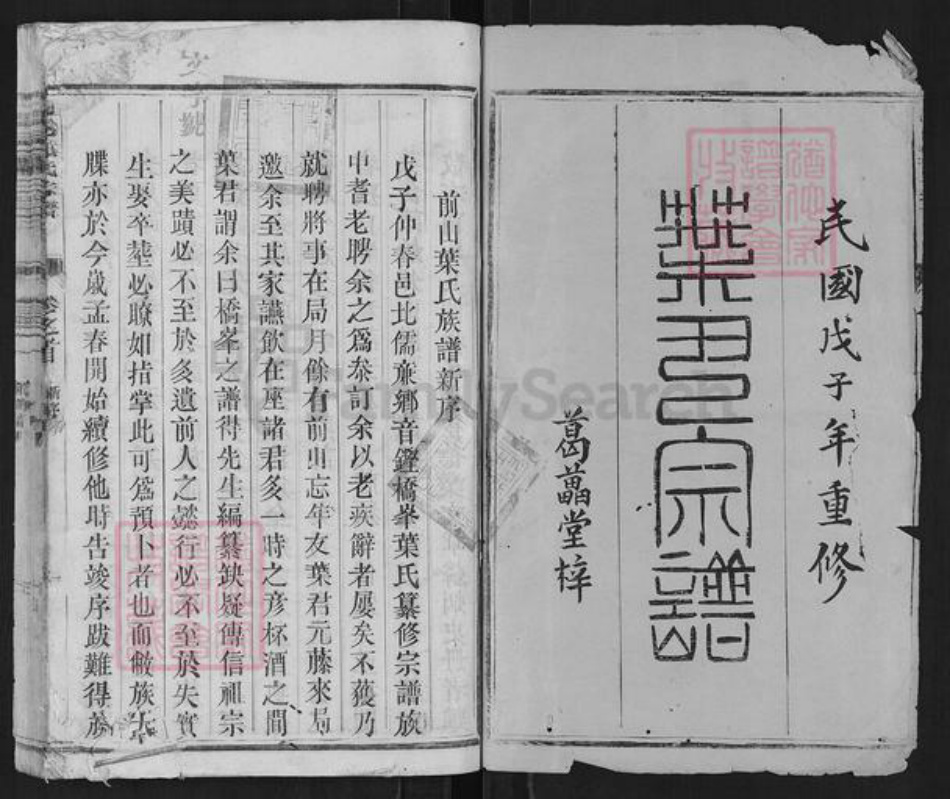 民國戊子年重修
葉氏宗譜
葛藟堂梓
前山葉氏族譜新序
戊子仲春邑北儒旅鄉音鏗橋峯葉氏纂修宗譜族
中耆老聘余之爲叅訂余以老疾辭者屢矣不獲乃
就聘將事在局月餘有前山忘年友葉君元藤來局
邀余至其家讌飲在座諸君多一時之彦杯酒之間
葉君謂余曰橋峯之譜得先生編纂缺疑傳信祖宗
之美蹟必不至於多遺前人之懿行必不至於失實
生娶卒塟必瞭如指掌此可爲預卜者也而敝族
牒亦於今歲孟春開始續修他時告竣序跋難得
卷之首
FamilySearch